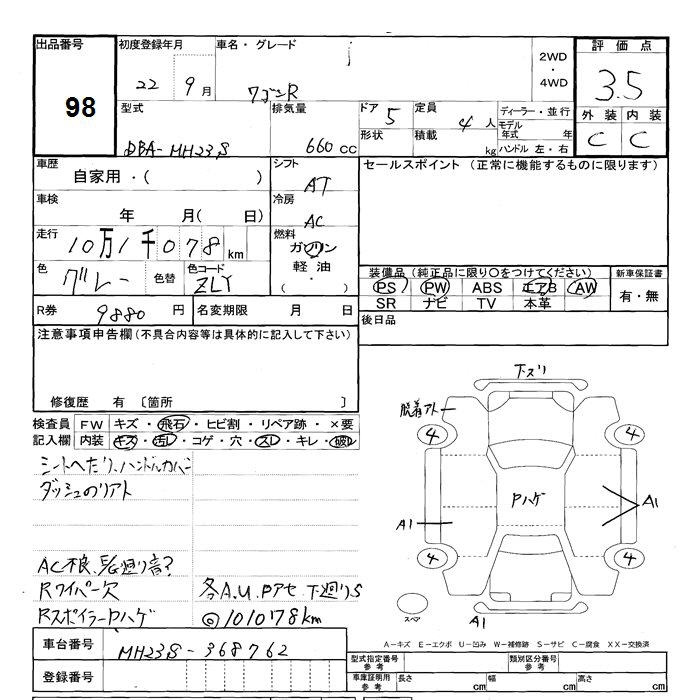 出品番号 初度登録年月 車名・グレード 2WD ・ 4WD 評価点
98 22 9月 ワゴンR 3.5
型式 排気量 ドア 5 定員 4人 ディーラー・並行 外装 内装
DBA-MH23S 660cc 形状 積載 kg モデル年式 年 C C
ハンドル 左・右
車歴 シフト セールスポイント (正常に機能するものに限ります)
自家用・( ) AT
車検 冷房
年 月( 日) AC
走行 10万1千078km 燃料
ガソリン
軽油
・( )
色 グレー 色替 色コード ZLY
装備品(純正品に限り○をつけてください) 新車保証書
PS PW ABS エアB AW 有・無
SR ナビ TV 本革
R券 9880円 名変期限 月 日 後日品
注意事項申告欄(不具合内容等は具体的に記入して下さい)
修復歴 有 〔箇所 〕
検査員 FW キズ・飛石・ヒビ割・リペア跡・×要
記入欄 内装 キズ・汚レ・コゲ・穴・スレ・キレ・破レ
シートへたり、ハンドルカバー
ダッシュのリアト
AC不良、 廻り音?
Rワイパー欠 各A.U.Pアセ 下廻りS
RスポイラーPハゲ ◎101078km
下ズリ
脱着アト
4 4
Pハゲ
A1 A1
4 4
スペア A1
A-キズ E-エクボ U-凹み W-補修跡 S-サビ C-腐食 XX-交換済
車台番号 MH23S-368762
登録番号
型式指定番号 参考 類別区分番号 参考
車庫証明用 参考 長さ cm 幅 cm 高さ cm